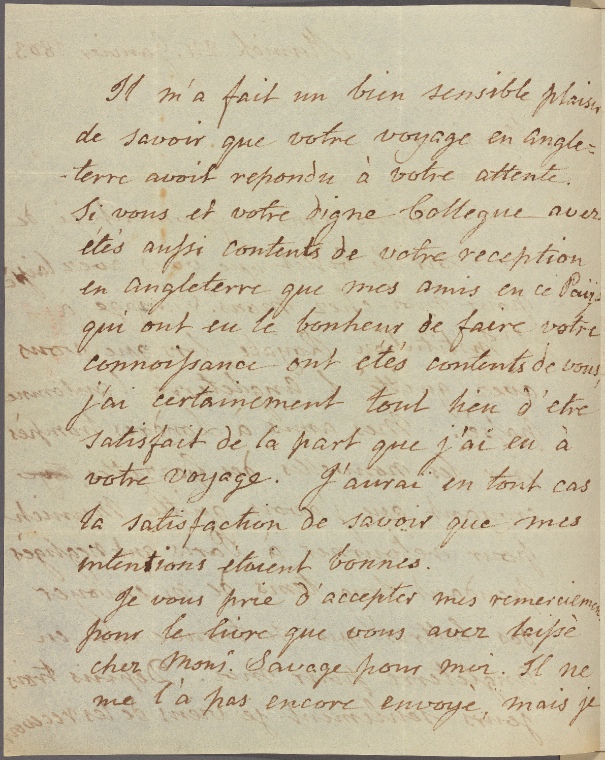 Il m'a fait un bien sensible plaisir
de savoir que votre voyage en Angle=
-terre avoit repondu à votre attente.
Si vous et votre digne Collegue avez
étés aussi contents de votre reception
en Angleterre que mes amis en ce Païs
qui ont eu le bonheur de faire votre
connoissance ont etés contents de vous,
j'ai certainement tout lieu d'etre
satisfait de la part que j'ai eu à
votre voyage. J'aurai en tout cas
la satisfaction de savoir que mes
intentions etoient bonnes.
Je vous prie d'accepter mes remerciemens
pour le livre que vous avez laissé
chez Monsr. Savage pour moi. Il ne
me l'à pas encore envoyé, mais je